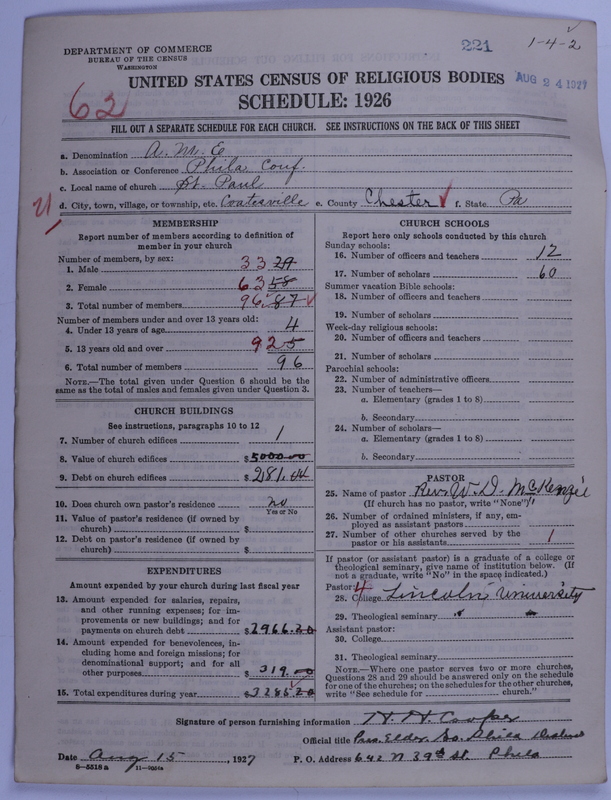 221
1-4-2
DEPARTMENT OF COMMERCE
BUREAU OF THE CENSUS
WASHINGTON
AUG 24 1927
UNITED STATES CENSUS OF RELIGIOUS BODIES
62
SCHEDULE: 1926
FILL OUT A SEPARATE SCHEDULE FOR EACH CHURCH. SEE INSTRUCTIONS ON THE BACK OF THIS SHEET
a. Denomination A. M. E
b. Association or Conference Phila Conf.
c. Local name of church St. Paul
d. City, town, village, or township, etc. Coatesville e. County Chester f. State Pa
MEMBERSHIP
Report number of members according to definition of
member in your church
Number of members, by sex:
1. Male 33 29
2. Female 63 58
3. Total number of members 96 87
Number of members under and over 13 years old:
4. Under 13 years of age 4
5. 13 years old and over 92
6. Total number of members 96
NOTE.—The total given under Question 6 should be the
same as the total of males and females given under Question 3.
CHURCH BUILDINGS
See instructions, paragraphs 10 to 12
7. Number of church edifices 1
8. Value of church edifices $5000.00
9. Debt on church edifices $281.04
10. Does church own pastor's residence no
Yes or No
11. Value of pastor's residence (if owned by
church) $
12. Debt on pastor's residence (if owned by
church) $
EXPENDITURES
Amount expended by your church during last fiscal year
13. Amount expended for salaries, repairs,
and other running expenses; for im-
provements or new buildings; and for
payments on church debt $2966.20
14. Amount expended for benevolences, in-
cluding home and foreign missions; for
denominational support; and for all
other purposes $319.00
15. Total expenditures during year $3285.20
CHURCH SCHOOLS
Report here only schools conducted by this church
Sunday schools:
16. Number of officers and teachers 12
17. Number of scholars 60
Summer vacation Bible schools:
18. Number of officers and teachers
19. Number of scholars
Week-day religious schools:
20. Number of officers and teachers
21. Number of scholars
Parochial schools:
22. Number of administrative officers
23. Number of teachers—
a. Elementary (grades 1 to 8)
b. Secondary
24. Number of scholars—
a. Elementary (grades 1 to 8)
b. Secondary
PASTOR
25. Name of pastor Rev. W. D. McKenzie
(If church has no pastor, write "None")
26. Number of ordained ministers, if any, em-
ployed as assistant pastors
27. Number of other churches served by the
pastor or his assistants 1
If pastor (or assistant pastor) is a graduate of a college or
theological seminary, give name of institution below. (If
not a graduate, write "No" in the space indicated.)
Pastor: 4
28. College Lincoln University
29. Theological seminary " "
Assistant pastor:
30. College
31. Theological seminary
NOTE.—Where one pastor serves two or more churches,
Questions 28 and 29 should be answered only on the schedule
for one of the churches; on the schedules for the other churches,
write "See schedule for church."
Signature of person furnishing information H. H. Cooper
Official title Pres. Elder, So. Phila District
Date Aug 15, 1927 P. O. Address 642 N 39th St. Phila
8—5518a 11—7064a